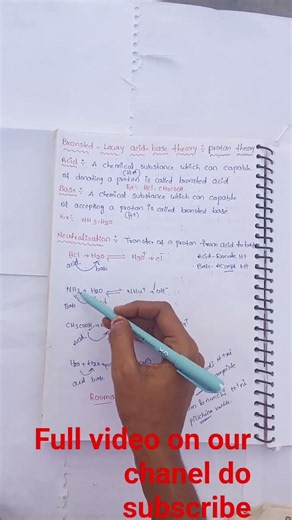 Bronsted - Lowry acid-base theory : proton theory
Acid :- A chemical substance which can capable
(H+)
of donating a proton is called bronsted acid
Ex:- HCl, CH3COOH
Base :- A chemical substance which can capable
of accepting a proton is called bronsted base
Ex:- NH3, H2O (H+)
Neutralisation :- Transfer of a proton from acid to b
HCl + H2O ⇌ H3O+ + Cl-
acid base
Acid - Donate H+
Base - Accept H+
NH3 + H2O ⇌ NH4+ + OH-
Base acid
CH3COOH +
acid
H2O +
acid base
Full video on our
chanel do
subscribe